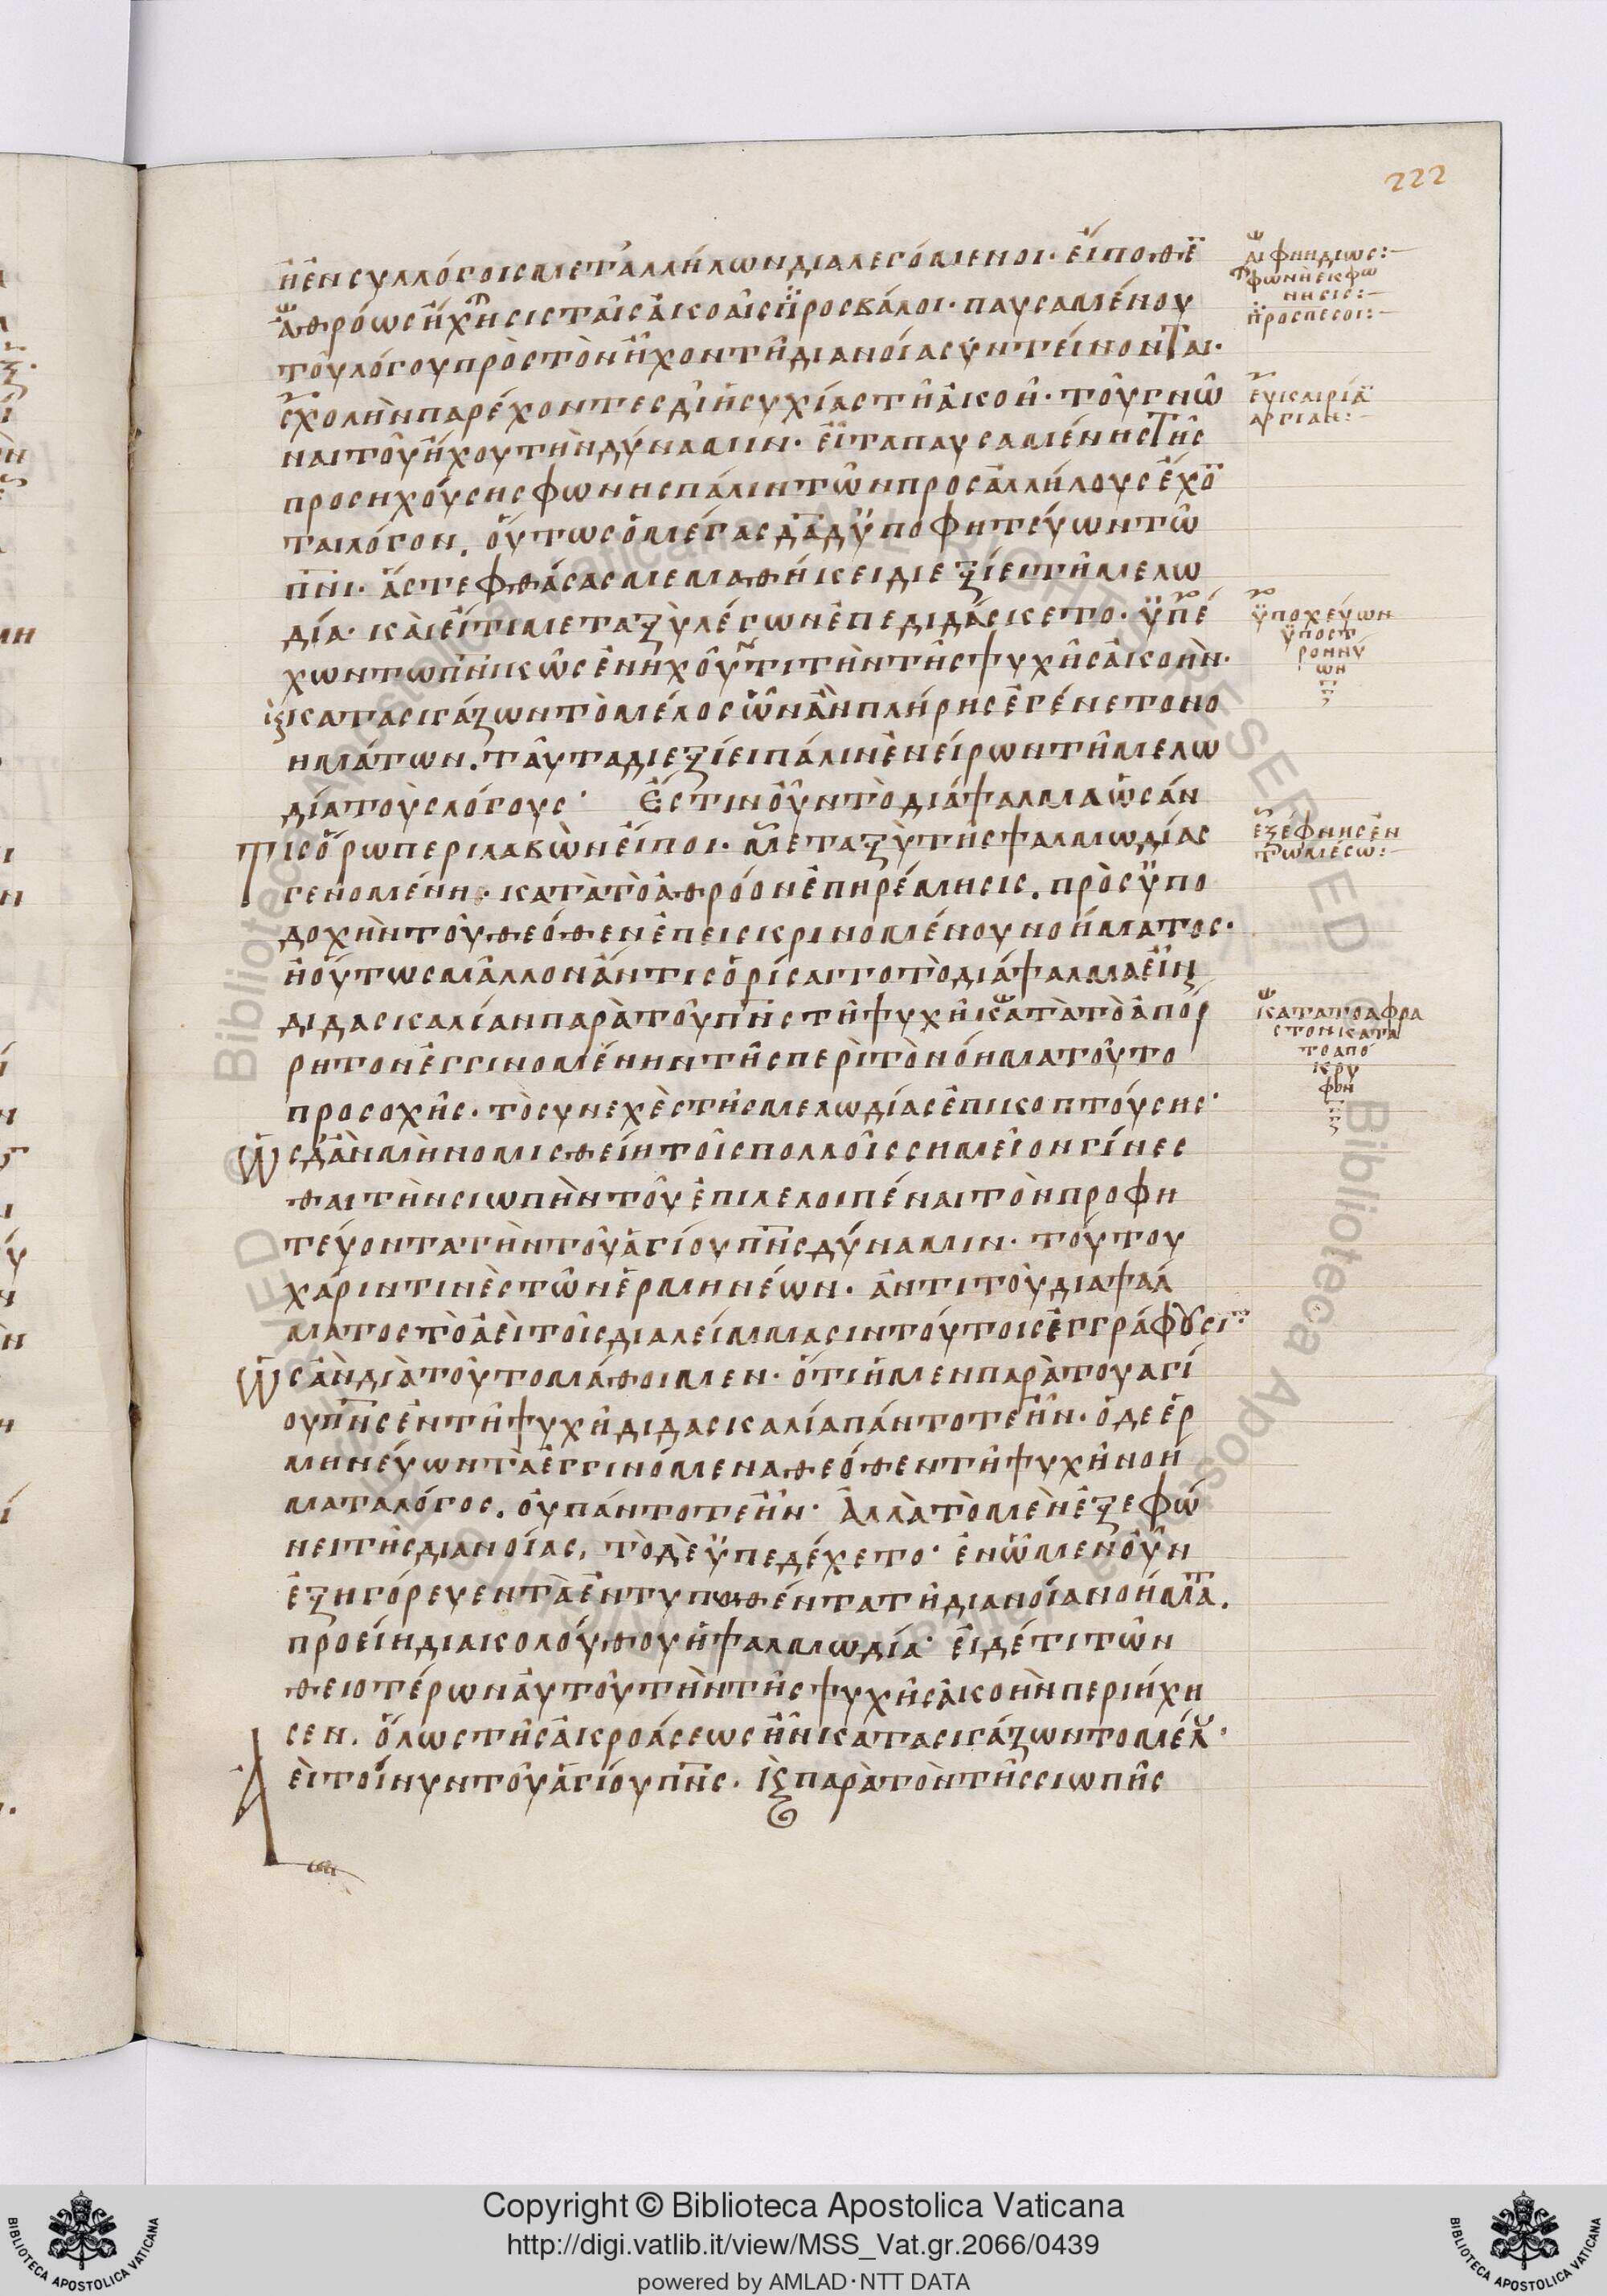 222
ἢ ἐν συλλόγοις μετ' ἀλλήλων διαλεγόμενοι· εἴ ποθε̄
ἀθρόως ἤχησις ταῖς ἀκοαῖς προσβάλοι· παυσαμένου
τοῦ λόγου πρὸς τὸν ἦχον τῆ διανοία συντείνονται·
σχολὴν παρέχοντες δι' ἡσυχίας τῆ ἀκοῆ· τοῦ γνῶ
ναι τοῦ ἤχου τὴν δύναμιν· εἶτα παυσαμένης τῆς
προσηχούσης φωνης πάλιν τῶν προς ἀλλήλους ἔχο̄
ται λόγον. οὕτως ὁ μέγας δαδ ὑποφητεύων τῶ
πνι· ἅς τε φθάσας μεμαθήκει διεξίει τῆ μελω
δία· καὶ εἴ τι μεταξὺ λέγων ἐπεδιδάσκετο· ὑπέ
χων τω πνικῶς ἐνηχοῦντι τὴν τῆς ψυχῆς ἀκοὴν·
κατασιγάζων τὸ μέλος ὧν ἂν πλήρης ἐγένετο νο
ημάτων. ταῦτα διεξίει πάλιν ἐνείρων τῆ μελω
δία τοὺς λόγους· Ἔστιν οὖν τὸ διάψαλμα ὡς ἄν
Τις ὅρω περιλαβὼν εἴποι· μεταξὺ τῆς ψαλμωδίας
γενομένη· κατὰ τὸ ἀθρόον ἐπηρέμησις. πρὸς ὑπο
δοχὴν τοῦ θεόθεν ἐπεισκρινομένου νοήματος·
ἢ οὕτως μᾶλλον ἄν τις ὁρίσαιτο τὸ διάψαλμα εἶν
διδασκαλίαν παρὰ τοῦ πνς τῆ ψυχῆ κατὰ τὸ ἀπόρ
ρητον ἐγγινομένην τῆς περὶ τὸ νόημα τοῦτο
προσοχῆς· τὸ συνεχὲς τῆς μελωδίας ἐπικοπτούσης·
Ὡς δ' ἂν μὴ νομισθείη τοῖς πολλοῖς σημεῖον γίνεσ
θαι τὴν σιωπὴν τοῦ ἐπιλελοιπέναι τὸν προφη
τεύοντα τὴν τοῦ ἁγίου πνς δύναμιν· τούτου
χάριν τινὲς τῶν ἑρμηνέων· ἀντὶ τοῦ διαψάλ
ματος τὸ ἀεὶ τοῖς διαλείμμασιν τούτοις ἐγγράφουσι·
Ὡς ἂν διὰ τοῦτο μάθοιμεν· ὅτι ἡ μεν παρὰ του αγί
ου πνς ἐν τῆ ψυχῆ διδασκαλία πάντοτε ἦν· ὁ δε ἑρ
μηνεύων τὰ ἐγγινόμενα θεόθεν τῆ ψυχῆ νοή
ματα λόγος. οὐ πάντοτε ἦν· Ἀλλὰ τὸ μὲν ἐξεφώ
νει τῆς διανοίας, τὸ δὲ ὑπεδέχετο· ἐν ὧ μεν οὖν
ἐξηγόρευεν τὰ ἐντυπωθέντα τῆ διανοία νοήμτα.
προείη διακολούθου ἡ ψαλμωδία· εἰ δέ τι τῶν
θειοτέρων αὐτοῦ τὴν τῆς ψυχῆς ἀκοὴν περιήχη
σεν. ὅλως τῆς ἀκροάσεως ἦν κατασιγάζων το μέλ·
Ἀεὶ τοίνυν τοῦ ἁγίου πνς. κ παρὰ τὸν τῆς σιωπῆς
αἰφνηδίως:
φωνὴ ἐκφώ
νησις:
προσπέσοι:
εὐκαιρία
αργίαν:
ὑποχεύων
ὑποστ
ρονηύ
ων
ἐξέφηνσεν
τω μέσω:
κατα το αφρα
στον κατα
το από
κρυ
φον
Copyright © Biblioteca Apostolica Vaticana
http://digi.vatlib.it/view/MSS_Vat.gr.2066/0439
powered by AMLAD·NTT DATA